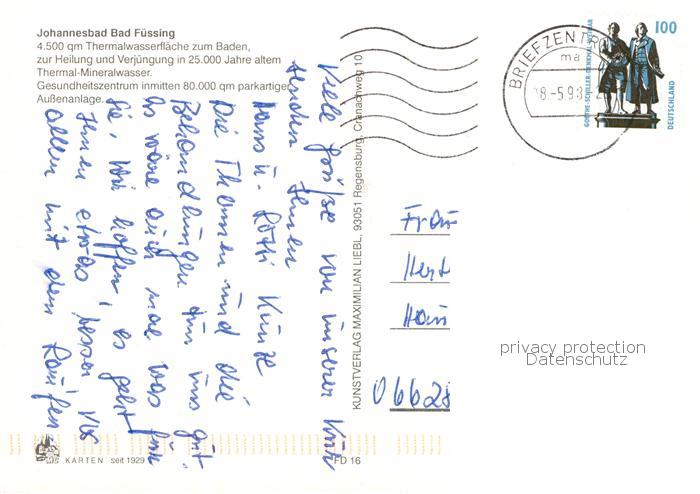 Johannesbad Bad Füssing
4.500 qm Thermalwasserfläche zum Baden,
zur Heilung und Verjüngung in 25.000 Jahre altem
Thermal-Mineralwasser.
Gesundheitszentrum inmitten 80.000 qm parkartiger
Außenanlage.
Viele Grüße von unserer Kur
senden Ihnen
Hans u. Rotti Kunze
Die Thermen und die
Behandlungen tun uns gut
Es wäre auch mal was für
Sie, Wir hoffen, es geht
Ihnen etwas besser
allem mit dem Laufen
KARTEN seit 1929
FD 16
KUNSTVERLAG MAXIMILIAN LIEBL, 93051 Regensburg, Cranachweg 10
BRIEFZENTR
ma
8.-5.98
GOETHE-SCHILLER-DENKMAL WEIMAR
100
DEUTSCHLAND
Frau
Hert
06628
privacy protection
Datenschutz